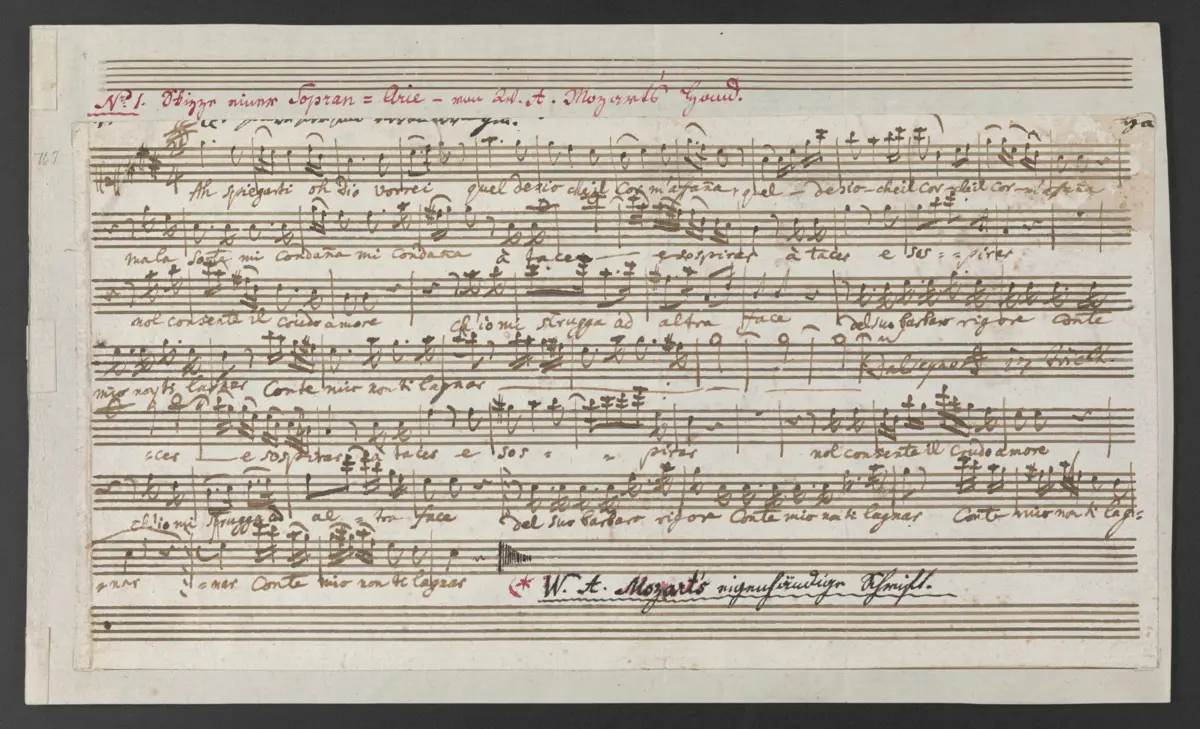 No 1. Skizze einer Sopran = Arie – von W. A. Mozart's Hand.
Ah spiegarti oh Dio vorrei quel desio che il Cor m'affaña, quel – desio – che il Cor – che il Cor – m'affaña
ma la sorte mi condaña mi condaña à tacer — e sospirar à tacer e sos = = pirar
nol consente il Crudo amore ch'io mi strugga ad altra face del suo barbaro rigore Conte
mio non ti lagnar Conte mio non ti lagnar
= cer — e sospirar à tacer e sos = = pirar nol consente il Crudo amore
ch'io mi strugga ad al = tra face del suo barbaro rigore Conte mio non ti lagnar Conte mio non ti lag =
= nar = nar Conte mio non ti lagnar
(* W. A. Mozart's eigenhändige Schrift.